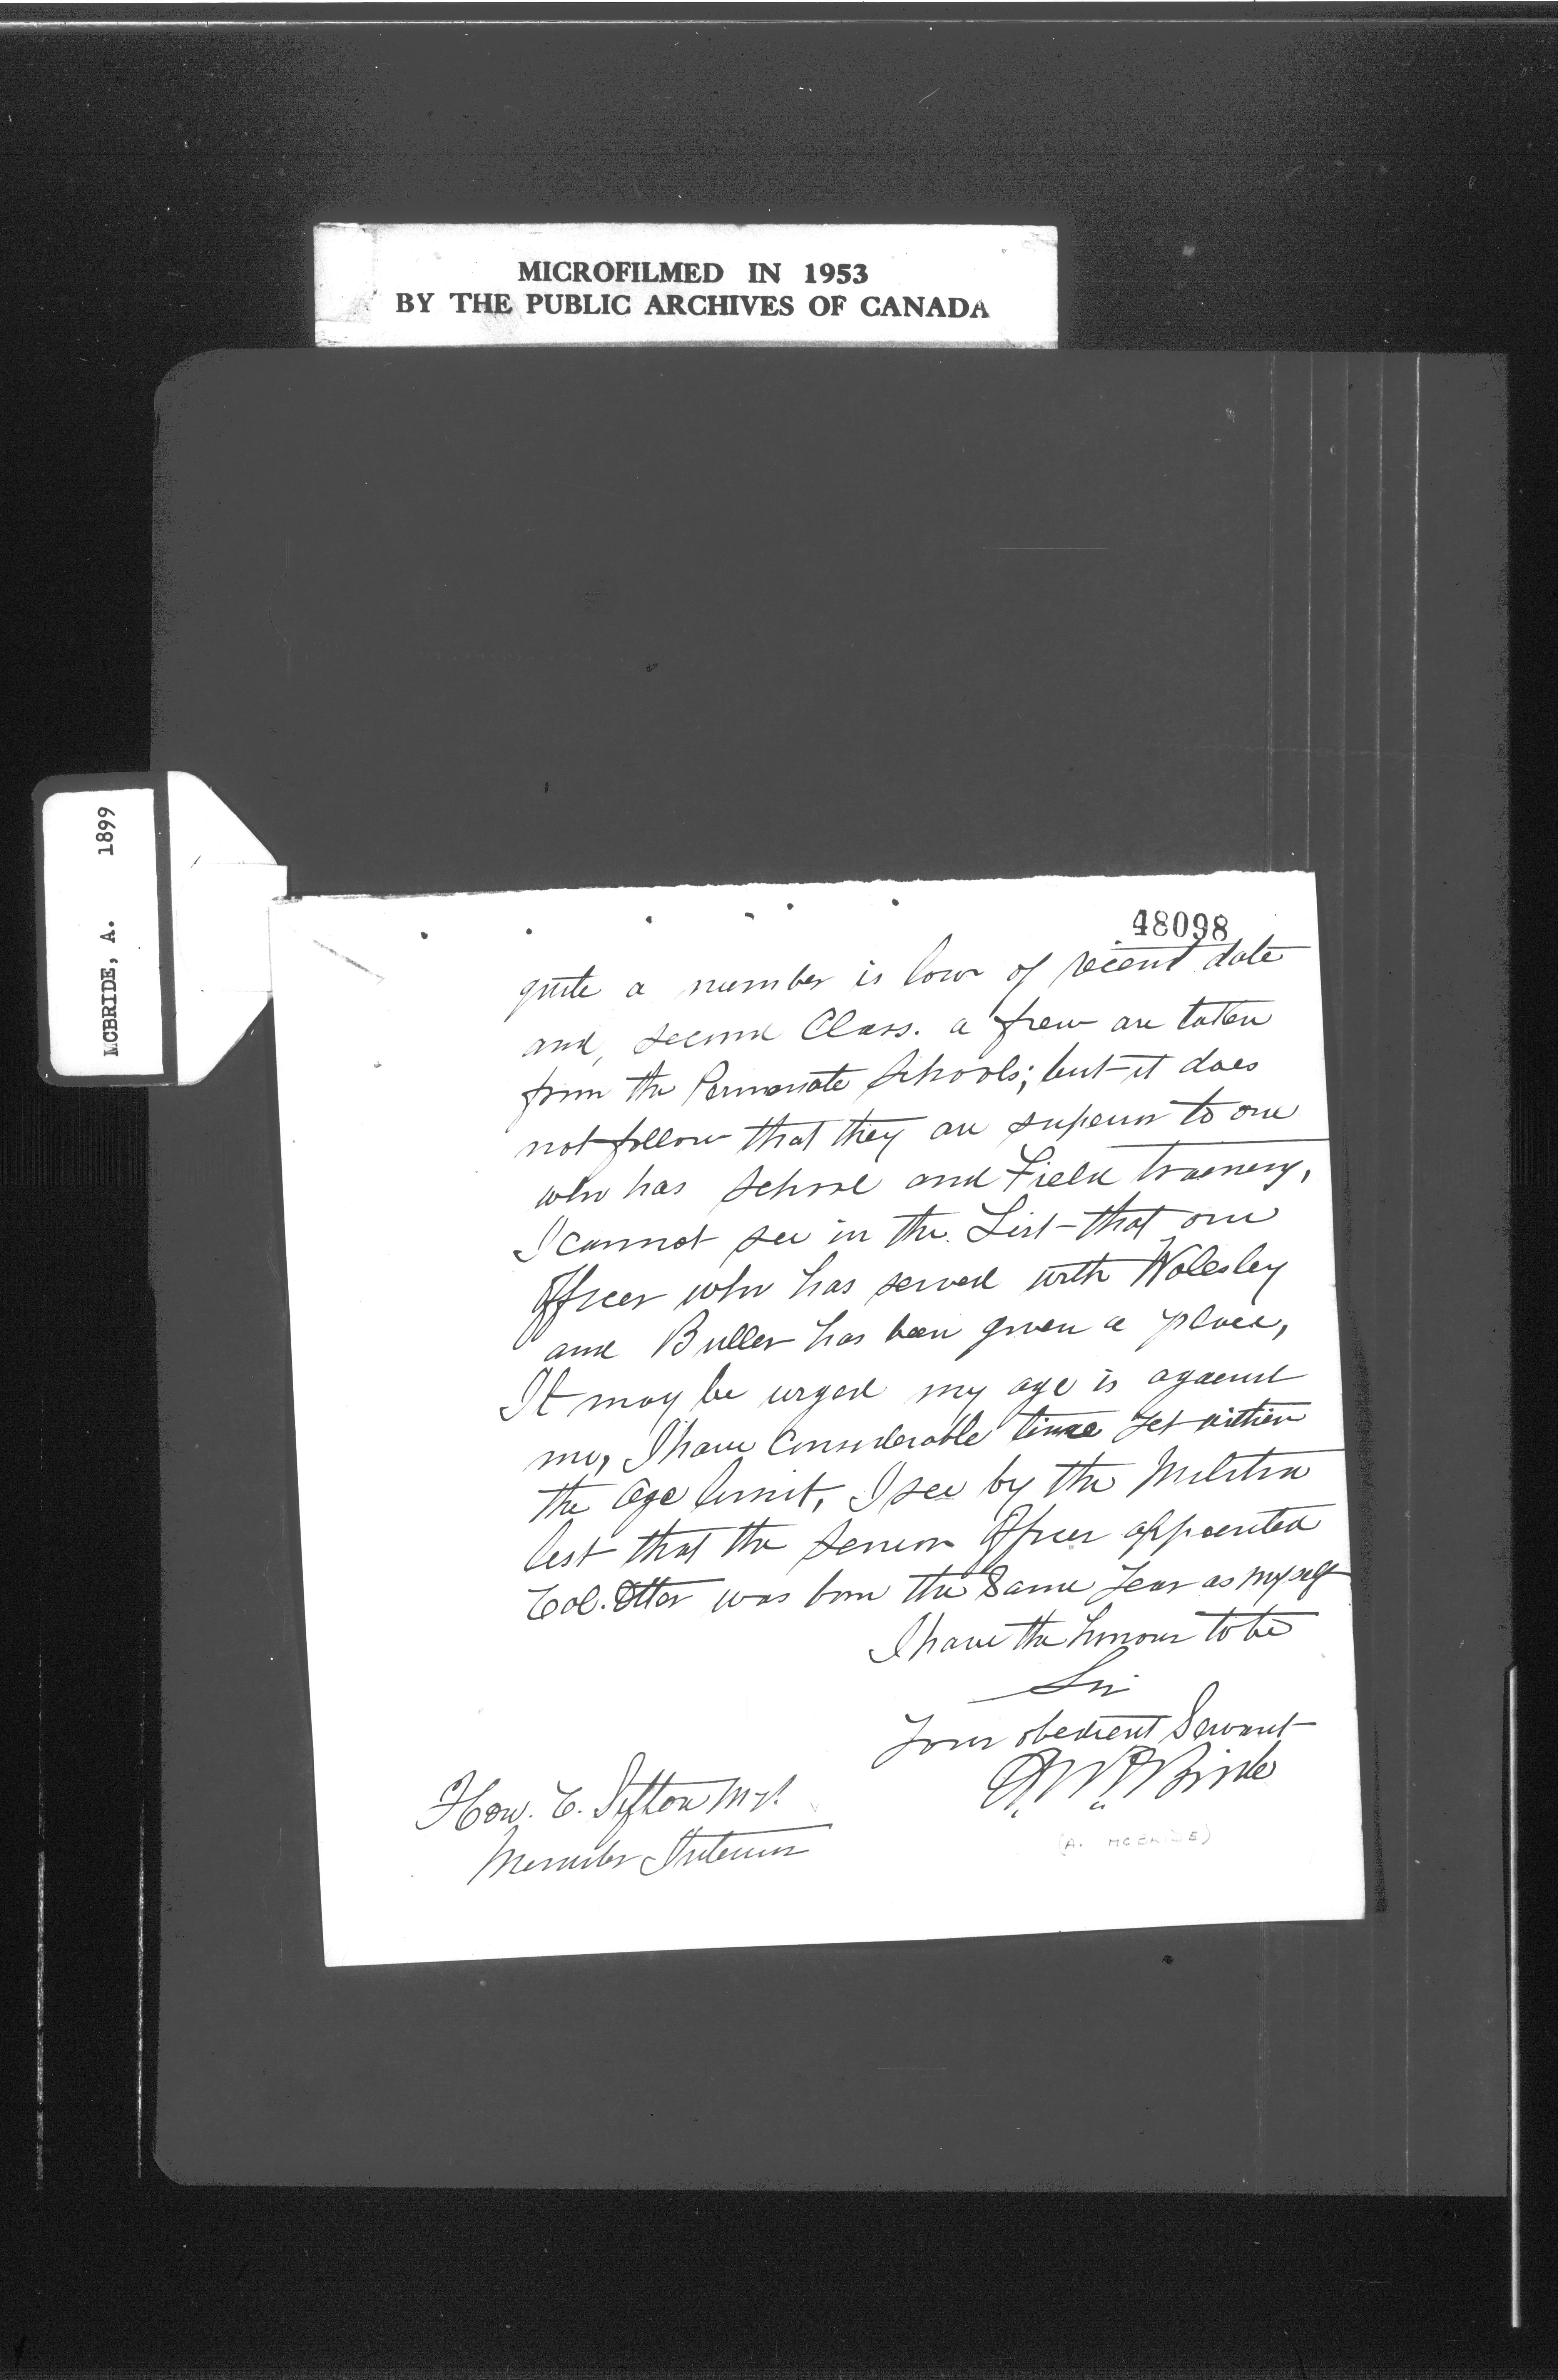 MICROFILMED IN 1953
BY THE PUBLIC ARCHIVES OF CANADA
MCBRIDE, A. 1899
48098
quite a number is low of recent date
and, second Class. a few are taken
from the Permanate Schools; but it does
not follow that they are superior to one
who has School and Field training,
I cannot see in the List that one
Officer who has served with Wolesley
and Buller has been given a place,
It may be urged my age is against
me, I have Considerable time yet within
the age limit, I see by the Militia
list that the Senior Officer appointed
Col. Otter was born the Same year as myself
I have the honour to be
Sir
Your obedient Servant
A. McBride
(A. MCBRIDE)
Hon. C. Sifton M.P.
Minister Interior